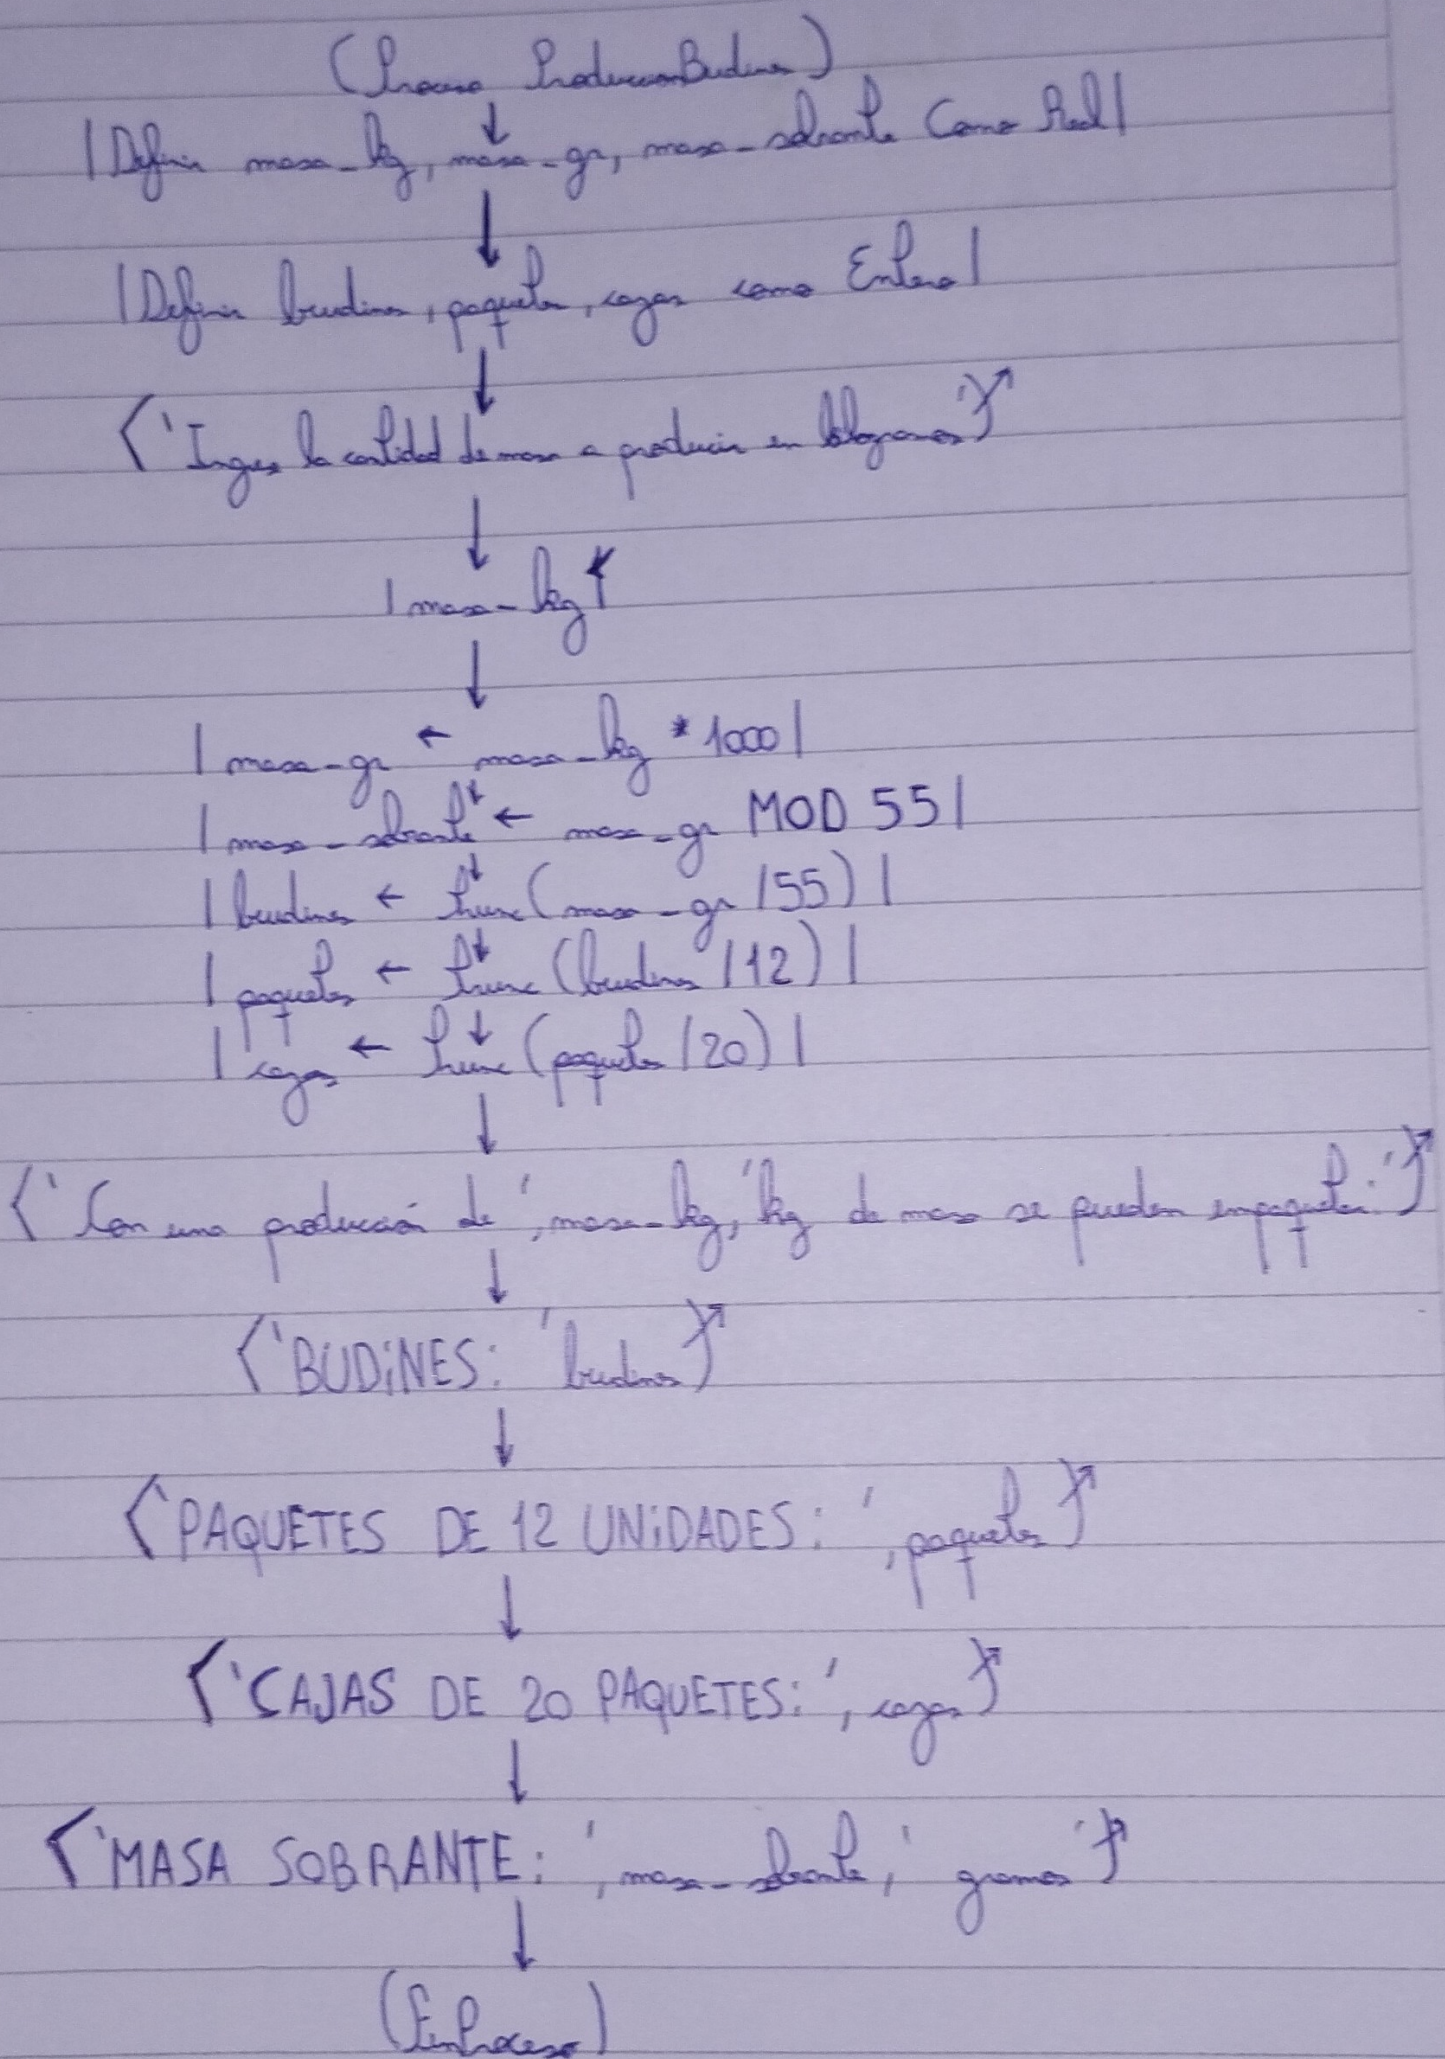 (Proceso ProduccionBudines)
|Definir masa_kg, masa_gr, masa_sobrante Como Real|
|Definir budines, paquetes, cajas como Entero|
'Ingres la cantidad de masa a producir en kilogramos'
|masa_kg
|masa_gr ← masa_kg * 1000|
|masa_sobrante ← masa_gr MOD 55|
|budines ← trunc(masa_gr /55)|
|paquetes ← trunc(budines /12)|
|cajas ← trunc(paquetes /20)|
'Con una producción de ', masa_kg, 'kg de masa se pueden empaquetar: '
'BUDiNES: ' budines
'PAQUETES DE 12 UNiDADES: ', paquetes
'CAJAS DE 20 PAQUETES: ', cajas
'MASA SOBRANTE: ', masa_sobrante, ' gramos'
(FinProceso)